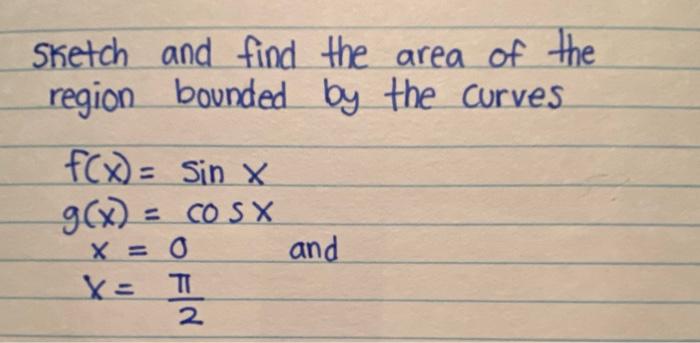 Sketch and find the area of the
region bounded by the curves
f(x) = sin x
g(x) = cos x
x = 0 and
x = π/2